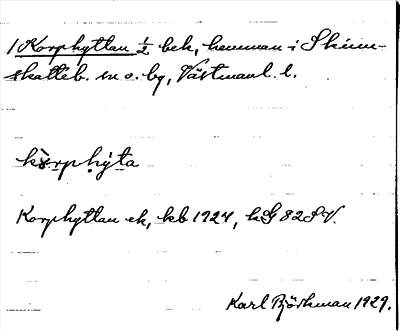 1 Korphyttan ½ bek, hemman i Skinn-
skatteb. sn o. by, Västmanl. l.
kɷrphy̨ta
Korphyttan ek, kb 1924, hG 82 SV.
Karl Björkman 1929.